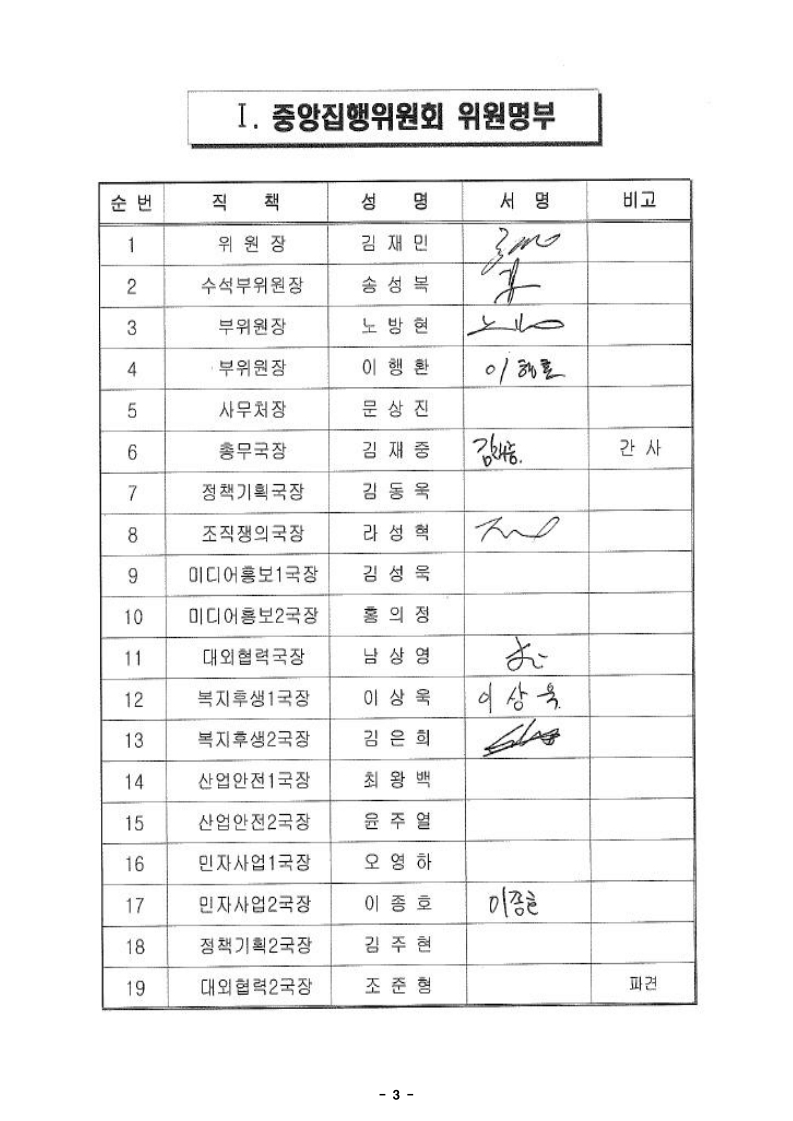 Ⅰ. 중앙집행위원회 위원명부
순 번 직 책 성 명 서 명 비고
1 위 원 장 김 재 민
2 수석부위원장 송 성 복
3 부위원장 노 방 현
4 부위원장 이 행 환 이행환
5 사무처장 문 상 진
6 총무국장 김 재 중 김재중. 간 사
7 정책기획국장 김 동 욱
8 조직쟁의국장 라 성 혁
9 미디어홍보1국장 김 성 욱
10 미디어홍보2국장 홍 의 정
11 대외협력국장 남 상 영
12 복지후생1국장 이 상 욱 이 상 욱
13 복지후생2국장 김 은 희
14 산업안전1국장 최 왕 백
15 산업안전2국장 윤 주 열
16 민자사업1국장 오 영 하
17 민자사업2국장 이 종 호 이종호
18 정책기획2국장 김 주 현
19 대외협력2국장 조 준 형 파견
- 3 -